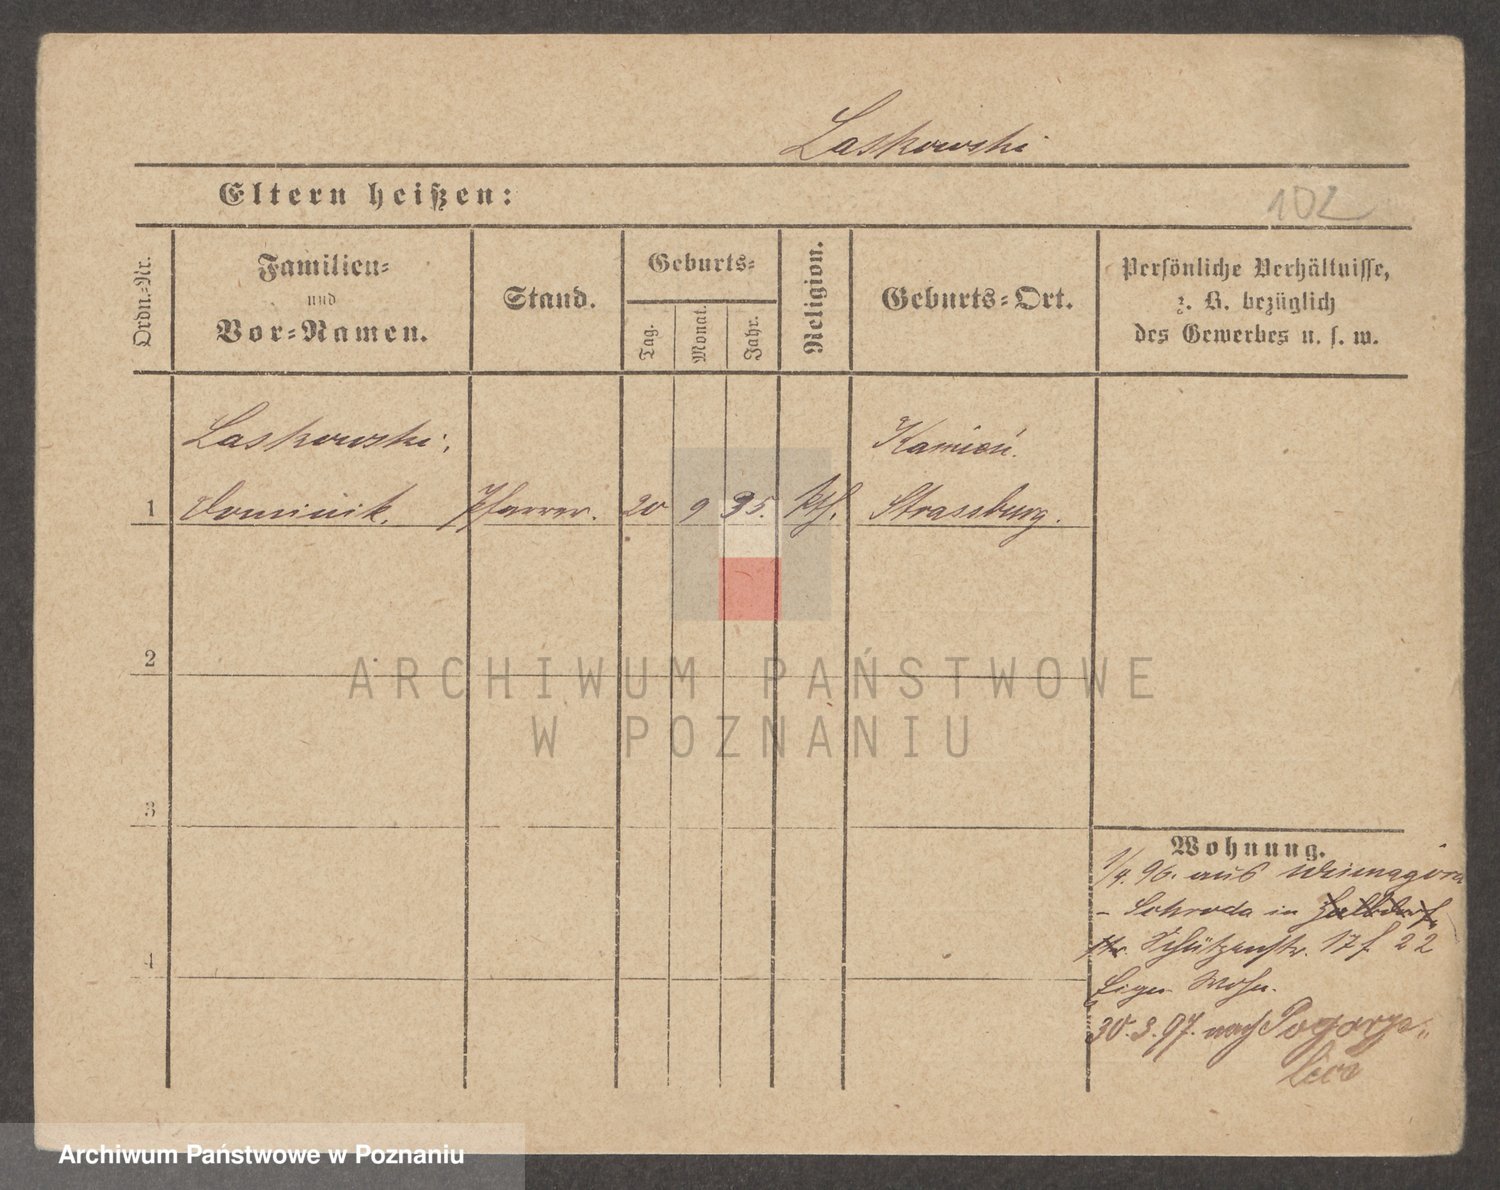 Laskowski
Eltern heißen:
102
Ordn.-Nr.
Familien-
und
Vor-Namen.
Stand.
Geburts-
Tag.
Monat.
Jahr.
Religion.
Geburts-Ort.
Persönliche Verhältnisse,
z. B. bezüglich
des Gewerbes u. s. w.
Laskowski,
Kamień.
1 Dominik. Pfarrer. 20 9 35. kth. Strassburg.
2
ARCHIWUM PAŃSTWOWE
W POZNANIU
3
Wohnung.
1/4. 96. aus
- Schroda in
4
str. Schützenstr. 17 f 22
Eigen Wohn.
30.3.97. nach Pogorze-
lice
Archiwum Państwowe w Poznaniu